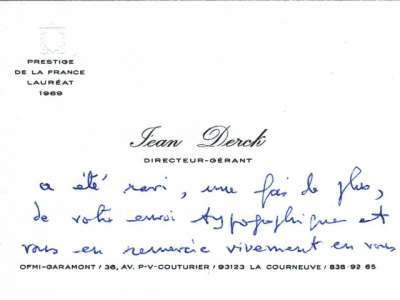 PRESTIGE
DE LA FRANCE
LAURÉAT
1969
Jean Derck
DIRECTEUR-GÉRANT
a été ravi, une fois de plus,
de votre envoi typographique et
vous en remercie vivement en vous
OFMI-GARAMONT / 36, AV. P-V-COUTURIER / 93123 LA COURNEUVE / 838-92 65